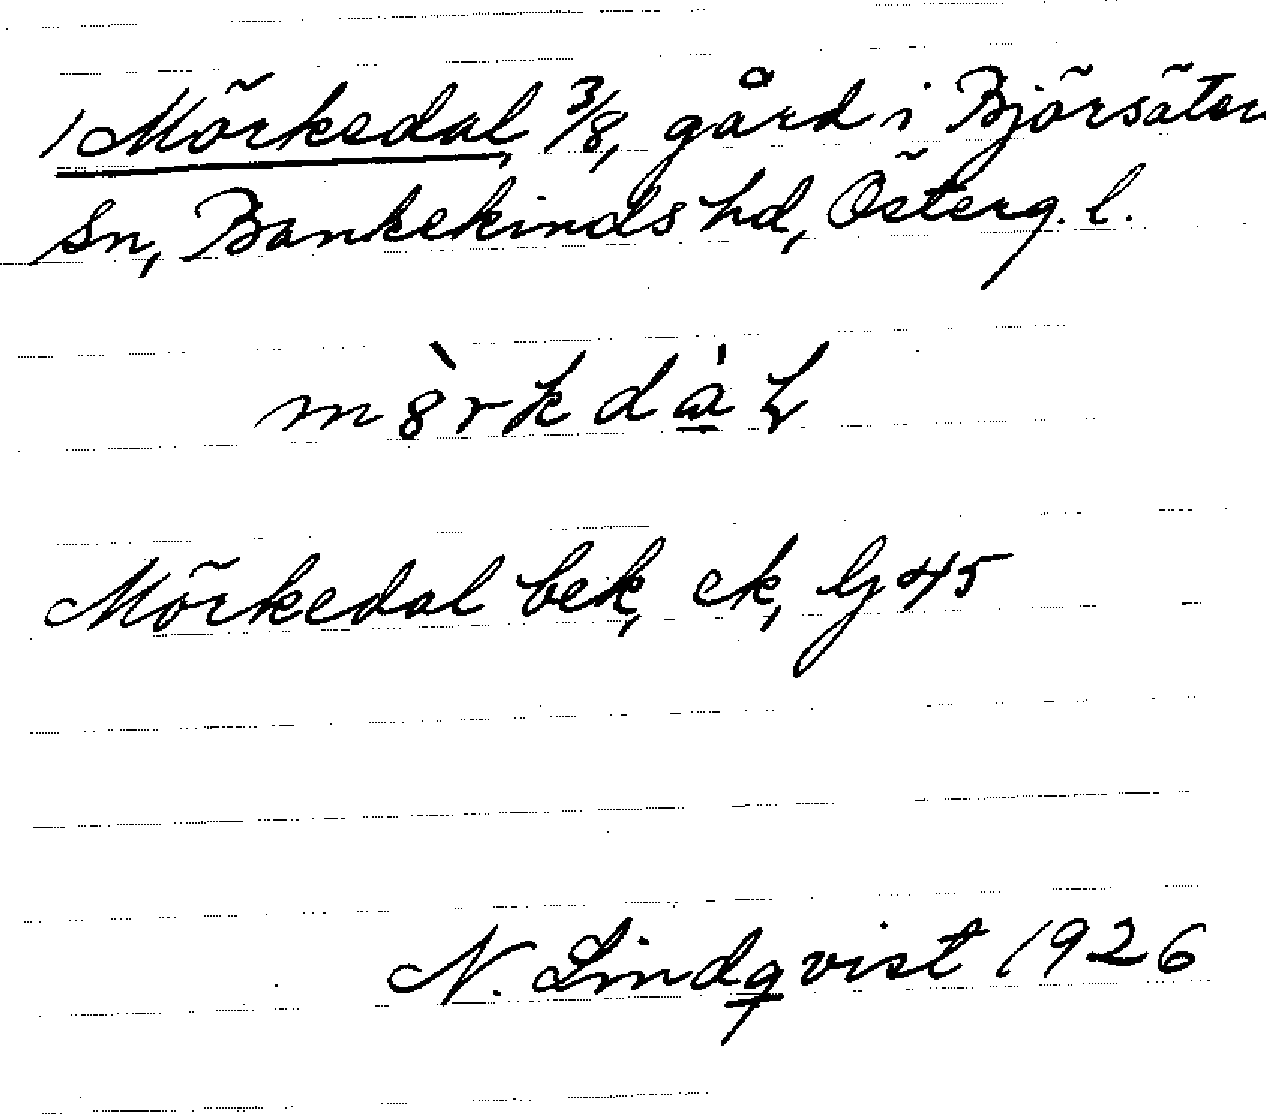 1 Mörkedal, 3/8, gård i Björsäters
sn, Bankekinds hd, Österg. l.
Mörkedal bek, ek, lj 45
N. Lindqvist 1926